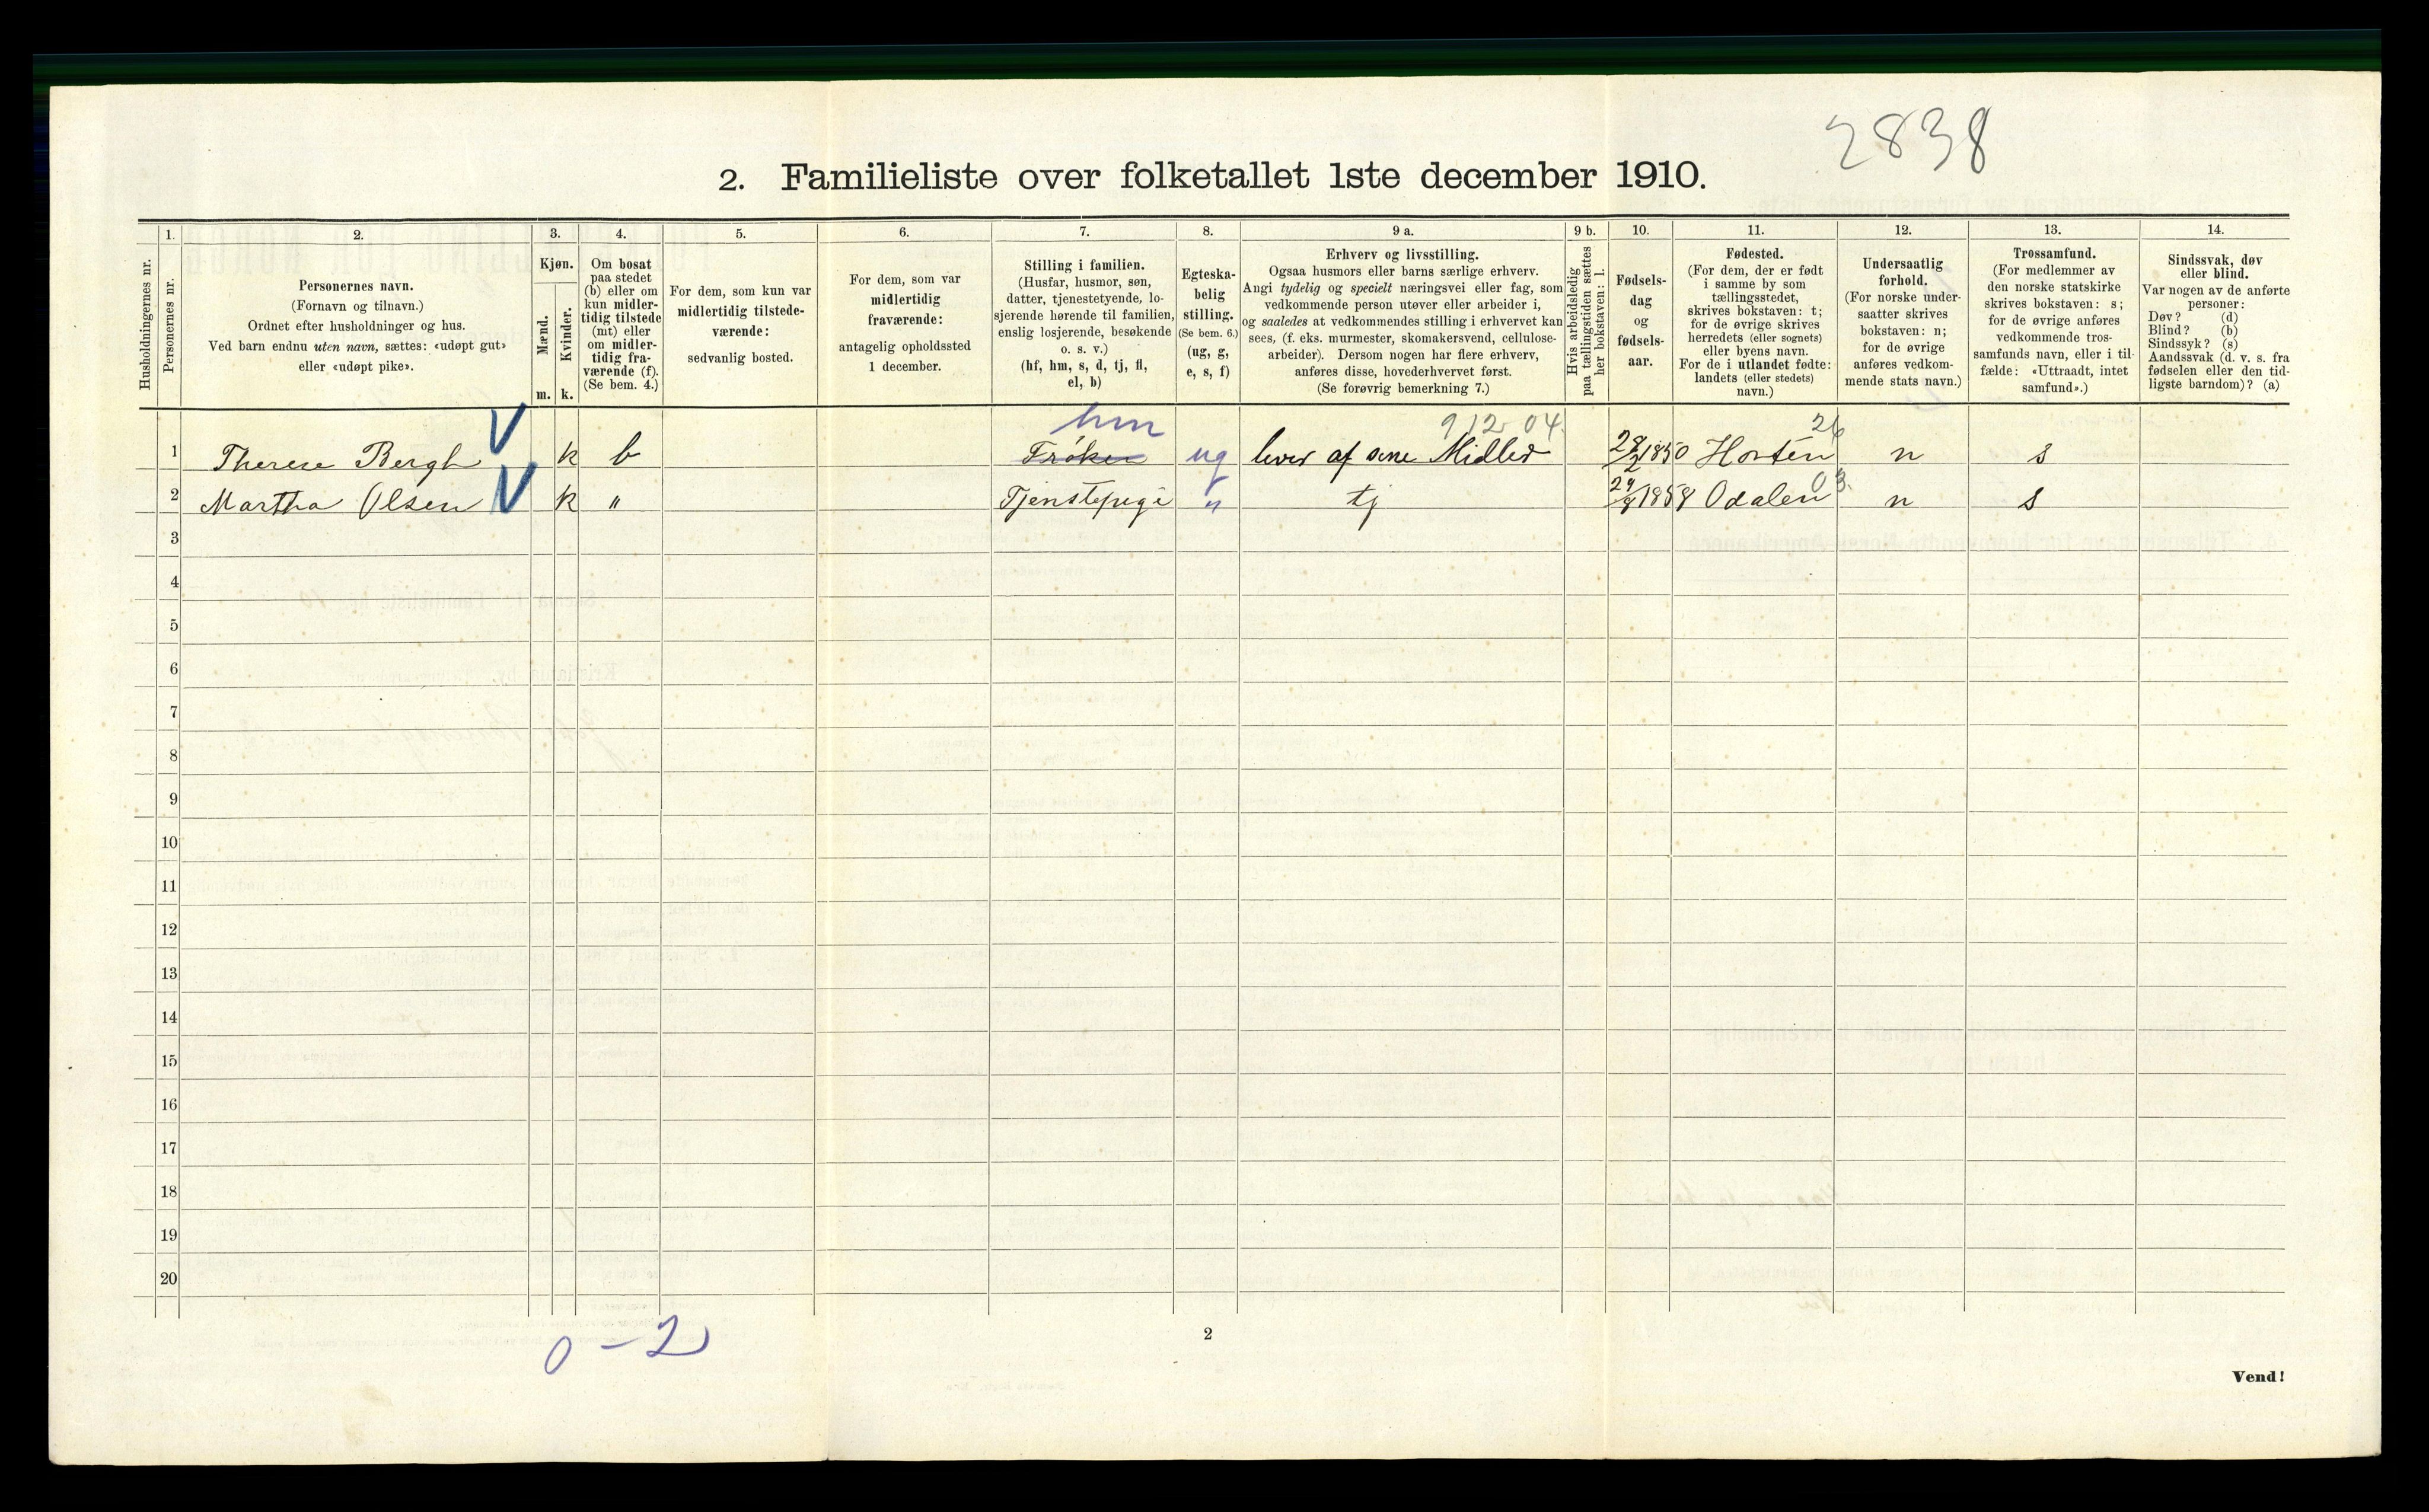 2838
2. Familieliste over folketallet 1ste december 1910.
Husholdningernes nr.
1.
Personernes nr.
2.
Personernes navn.
(Fornavn og tilnavn.)
Ordnet efter husholdninger og hus.
Ved barn endnu uten navn, sættes: «udøpt gut»
eller «udøpt pike».
3.
Kjøn.
Mænd.
m.
Kvinder.
k.
4.
Om bosat
paa stedet
(b) eller om
kun midler-
tidig tilstede
(mt) eller
om midler-
tidig fra-
værende (f).
(Se bem. 4.)
5.
For dem, som kun var
midlertidig tilstede-
værende:
sedvanlig bosted.
6.
For dem, som var
midlertidig
fraværende:
antagelig opholdssted
1 december.
7.
Stilling i familien.
(Husfar, husmor, søn,
datter, tjenestetyende, lo-
sjerende hørende til familien,
enslig losjerende, besøkende
o. s. v.)
(hf, hm, s, d, tj, fl,
el, b)
8.
Egteska-
belig
stilling.
(Se bem. 6.)
(ug, g,
e, s, f)
9 a.
Erhverv og livsstilling.
Ogsaa husmors eller barns særlige erhverv.
Angi tydelig og specielt næringsvei eller fag, som
vedkommende person utøver eller arbeider i,
og saaledes at vedkommendes stilling i erhvervet kan
sees, (f. eks. murmester, skomakersvend, cellulose-
arbeider). Dersom nogen har flere erhverv,
anføres disse, hovederhvervet først.
(Se forøvrig bemerkning 7.)
9 b.
Hvis arbeidsledig
paa tællingstiden sættes
her bokstaven: l.
10.
Fødsels-
dag
og
fødsels-
aar.
11.
Fødested.
(For dem, der er født
i samme by som
tællingsstedet,
skrives bokstaven: t;
for de øvrige skrives
herredets (eller sognets)
eller byens navn.
For de i utlandet fødte:
landets (eller stedets)
navn.)
12.
Undersaatlig
forhold.
(For norske under-
saatter skrives
bokstaven: n;
for de øvrige
anføres vedkom-
mende stats navn.)
13.
Trossamfund.
(For medlemmer av
den norske statskirke
skrives bokstaven: s;
for de øvrige anføres
vedkommende tros-
samfunds navn, eller i til-
fælde: «Uttraadt, intet
samfund».)
14.
Sindssvak, døv
eller blind.
Var nogen av de anførte
personer:
Døv? (d)
Blind? (b)
Sindssyk? (s)
Aandssvak (d. v. s. fra
fødselen eller den tid-
ligste barndom)? (a)
hm 912 04. 26
1 Therese Bergh V k b Frøken ug lever af sine Midler 1850 Horten n s
03.
2 Martha Olsen V k " Tjenstepige " tj 29/8 1858 Odalen n s
3
4
5
6
7
8
9
10
11
12
13
14
15
16
17
18
19
20
0-2
2
Vend!